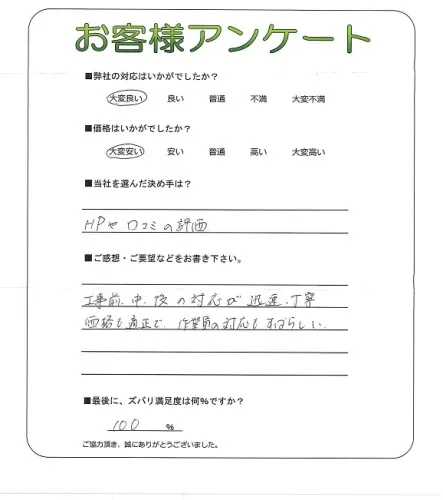 お客様アンケート
■弊社の対応はいかがでしたか？
大変良い 良い 普通 不満 大変不満
■価格はいかがでしたか？
大変安い 安い 普通 高い 大変高い
■当社を選んだ決め手は？
HPや口コミの評価
■ご感想・ご要望などをお書き下さい。
工事前、中、後の対応が迅速、丁寧
価格も適正で、作業員の対応もすばらしい。
■最後に、ズバリ満足度は何%ですか？
100 %
ご協力頂き、誠にありがとうございました。